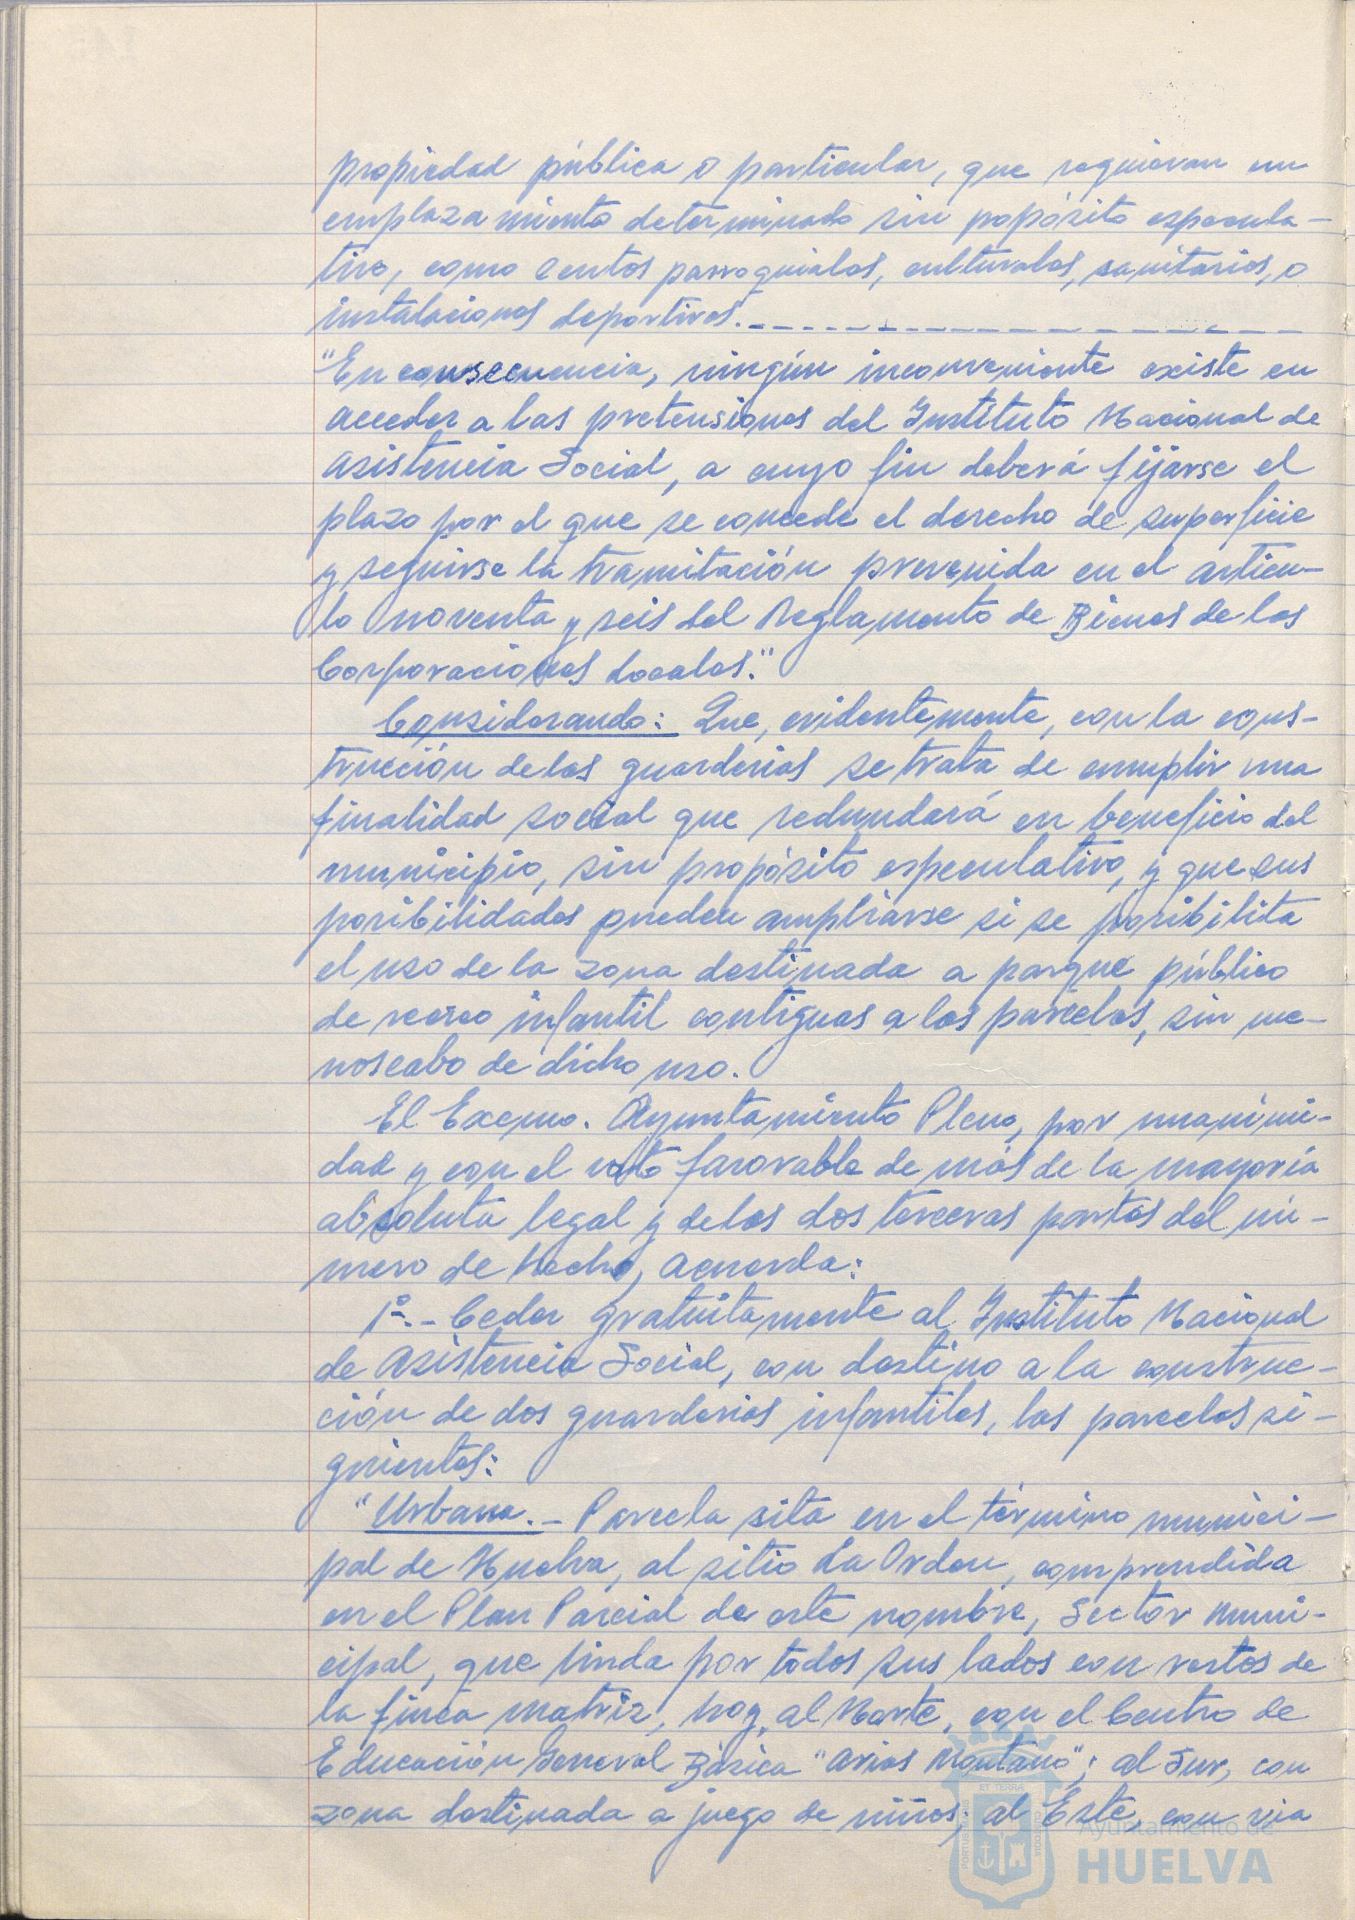 propiedad pública o particular, que requieran un
emplazamiento determinado sin propósito especula-
tivo, como Centos parroquiales, culturales, sanitarios, o
instalaciones deportivas.
"En consecuencia, ningún inconveniente existe en
acceder a las pretensiones del Instituto Nacional de
Asistencia Social, a cuyo fin deberá fijarse el
plazo por el que se concede el derecho de superficie
y seguirse la tramitación prevenida en el artícu-
lo noventa y seis del Reglamento de Bienes de las
Corporaciones Locales."
Considerando: Que, evidentemente, con la cons-
trucción de las guarderías se trata de cumplir una
finalidad social que redundará en beneficio del
municipio, sin propósito especulativo, y que sus
posibilidades pueden ampliarse si se posibilita
el uso de la zona destinada a parque público
de recreo infantil contiguas a las parcelas, sin me-
noscabo de dicho uso.
El Excmo. Ayuntamiento Pleno, por unanimi-
dad y con el voto favorable de más de la mayoría
absoluta legal y de las dos terceras partes del nú-
mero de Hecho, acuerda:
1º.- Ceder gratuitamente al Instituto Nacional
de Asistencia Social, con destino a la construc-
ción de dos guarderías infantiles, las parcelas si-
guientes:
"Urbana.- Parcela sita en el término munici-
pal de Huelva, al sitio La Orden, comprendida
en el Plan Parcial de este nombre, Sector Muni-
cipal, que linda por todos sus lados con restos de
la finca matriz, hoy, al Norte, con el Centro de
Educación General Básica "Arias Montano"; al Sur, con
zona destinada a juego de niños; al Este, con vía
PORTUS MARIS ET TERRAE CUSTODIA
Ayuntamiento de
HUELVA